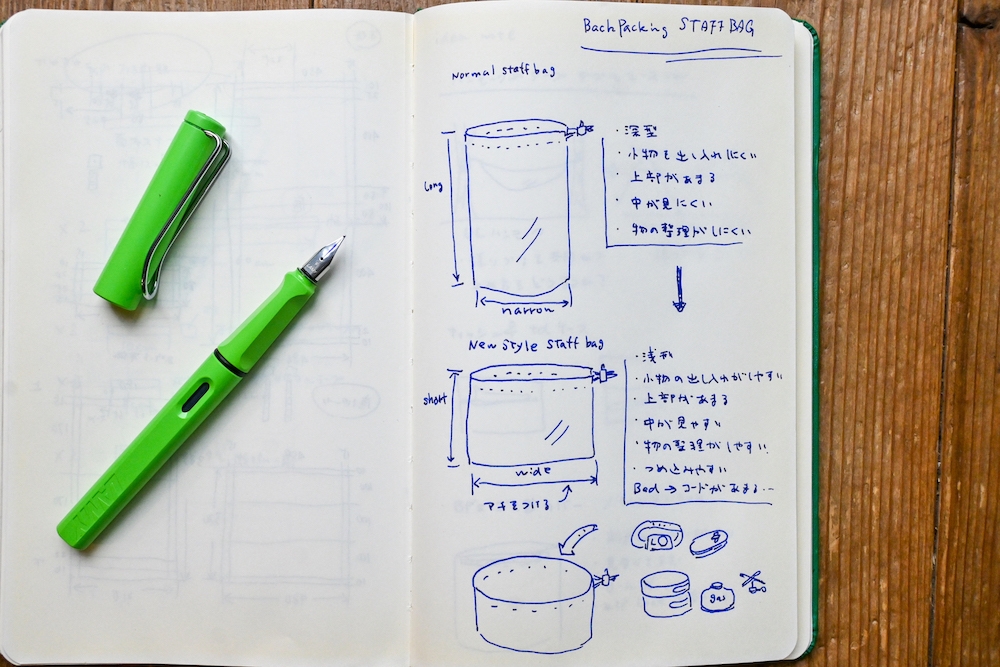 BackPacking STAFF BAG
Normal staff bag
long
narrow
・深型
・小物を出し入れにくい
・上部があまる
・中が見にくい
・物の整理がしにくい
New style staff bag
short
wide
マチをつける
・浅型
・小物の出し入れがしやすい
・上部があまる
・中が見やすい
・物の整理がしやすい
・つめ込みやすい
Bad → コードがあまる…
gas